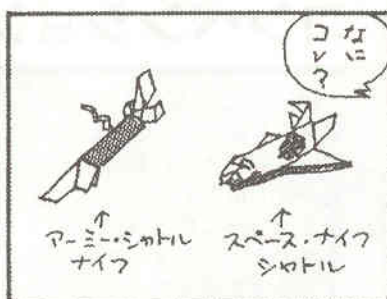 なに
コレ?
↑
アーミー・シャトル
ナイフ
↑
スペース・ナイフ
シャトル